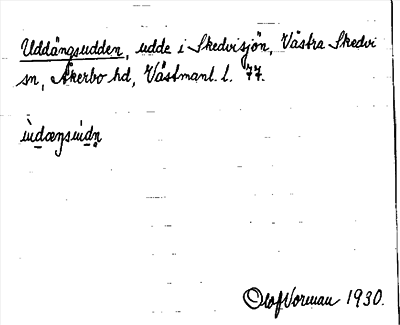 Uddängsudden, udde i Skedvisjön, Västra Skedvi
sn, Åkerbo hd, Västmanl. l. 77.
ùdæŋsùdn̥
Olof Vorman 1930.